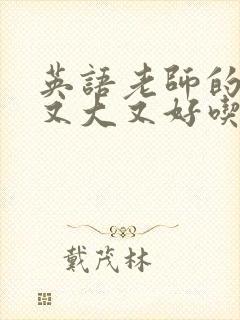 英語老師的
又大又好喫
戴茂林